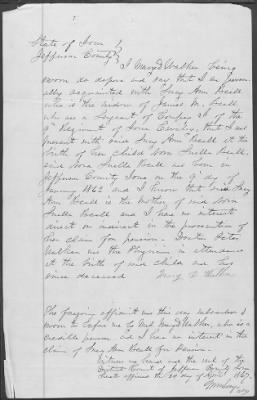 State of Iowa
Jefferson County
I Mary D Walker being
sworn do depose and say that I am personally
acquainted with Lucy Ann Beall
who is the widow of James M. Beall
who was a Sergeant of Company of the
9" Regiment of Iowa Cavalry, that I was
present with said Lucy Ann Beall at the
birth of her child Luella Beall,
said Luella Beall was born in
Jefferson County Iowa on the 9" day of
January 1862 and I know that said Lucy
Ann Beall is the mother of said
Luella Beall and I have no interest
direct or indirect in the prosecution of
her claim for pension. Doctor Peter
Walker was the Physician in attendance
at the birth of said child and has
since deceased
Mary D Walker
The foregoing affidavit was this day subscribed &
sworn to before me by Mary D Walker, who is a
credible person and has no interest in the
claim of Lucy Ann Beall for Pension.
Witness my hand and the seal of the
District Court of Jefferson County Iowa
day of 1867